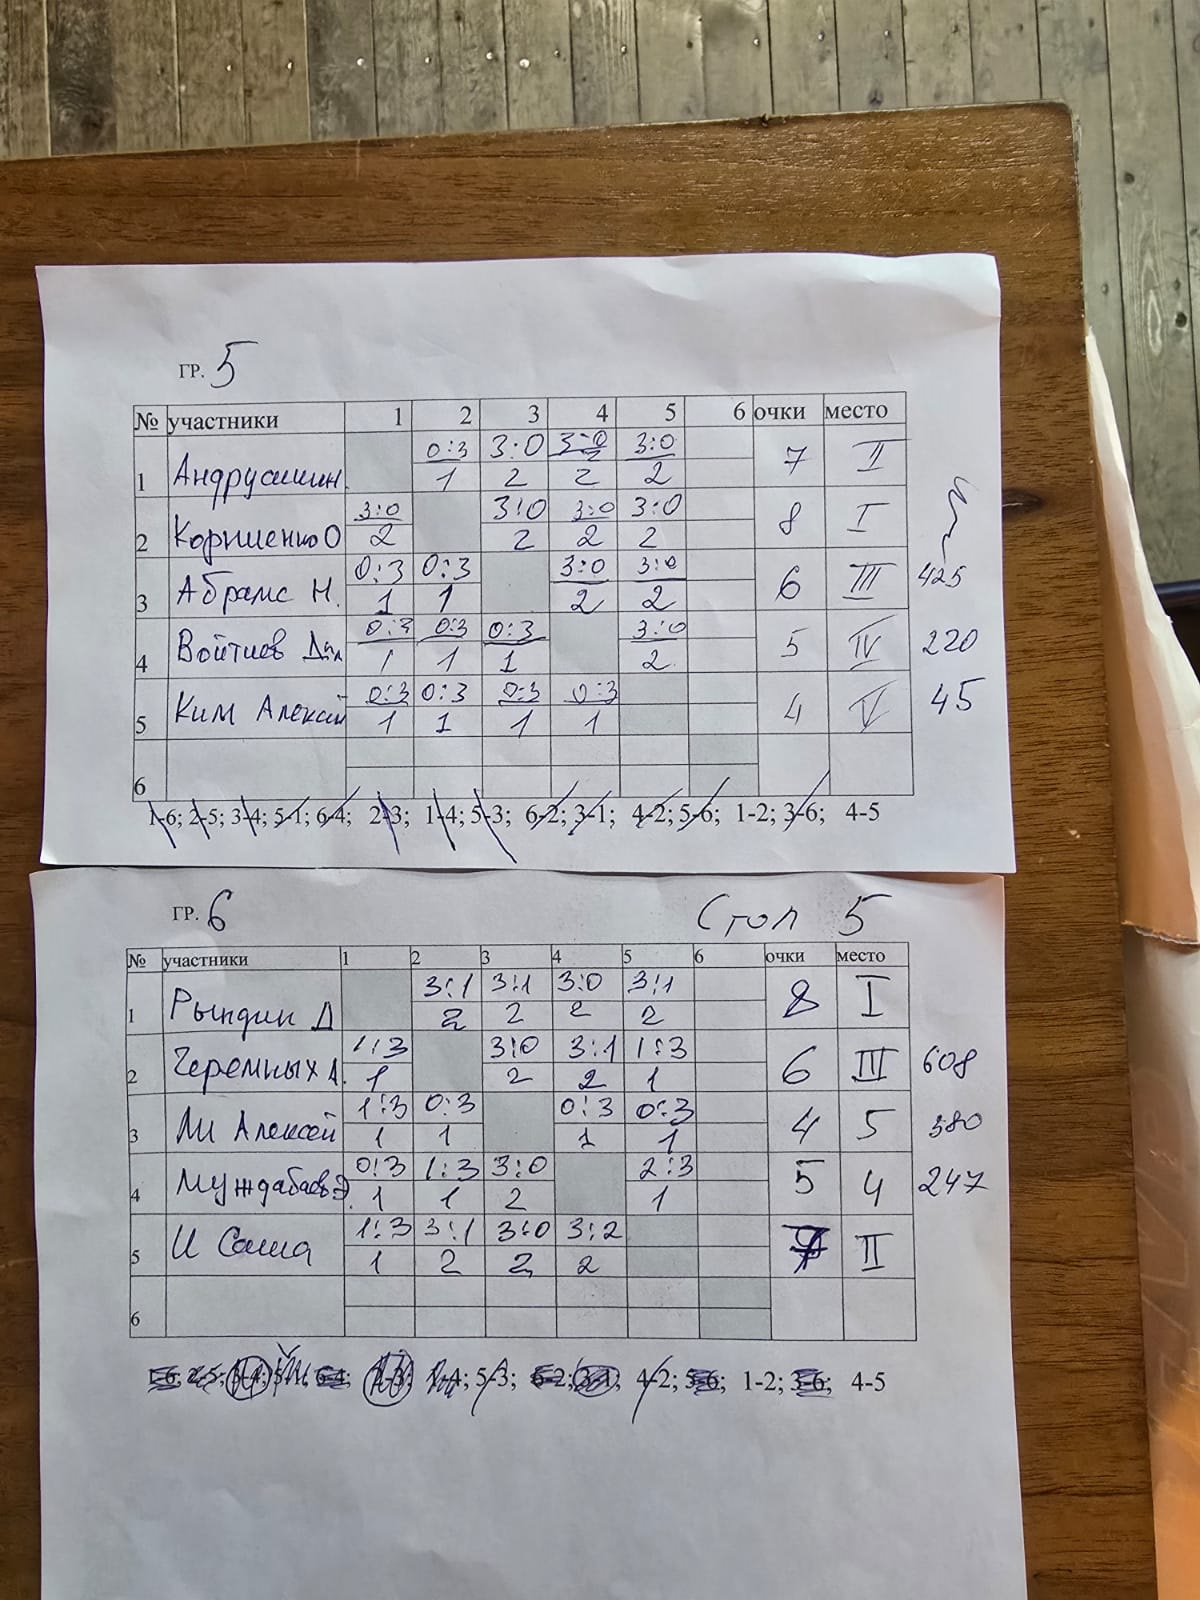 ГР. 5
№ участники 1 2 3 4 5 6 очки место
1 Андрусишин 0:3 3:0 3:0 3:0 7 II
1 2 2 2
2 Корниенко О 3:0 3:0 3:0 3:0 8 I
2 2 2 2
3 Абрамс Н. 0:3 0:3 3:0 3:0 6 III 425
1 1 2 2
4 Войтиев 0:3 0:3 0:3 3:0 5 IV 220
1 1 1 2
5 Ким Алексей 0:3 0:3 0:3 0:3 4 V 45
1 1 1 1
6
1-6; 2-5; 3-4; 5-1; 6-4; 2-3; 1-4; 5-3; 6-2; 3-1; 4-2; 5-6; 1-2; 3-6; 4-5
ГР. 6 Стол 5
№ участники 1 2 3 4 5 6 очки место
1 Рындин Д 3:1 3:1 3:0 3:1 8 I
2 2 2 2
2 Черемных А. 1:3 3:0 3:1 1:3 6 III 608
1 2 2 1
3 Ли Алексей 1:3 0:3 0:3 0:3 4 5 580
1 1 1 1
4 Муждабаев Э. 0:3 1:3 3:0 2:3 5 4 247
1 1 2 1
5 И Саша 1:3 3:1 3:0 3:2 7 II
1 2 2 2
6
1-6; 2-5; 3-4; 5-1; 6-4; 2-3; 1-4; 5-3; 6-2; 3-1; 4-2; 5-6; 1-2; 3-6; 4-5